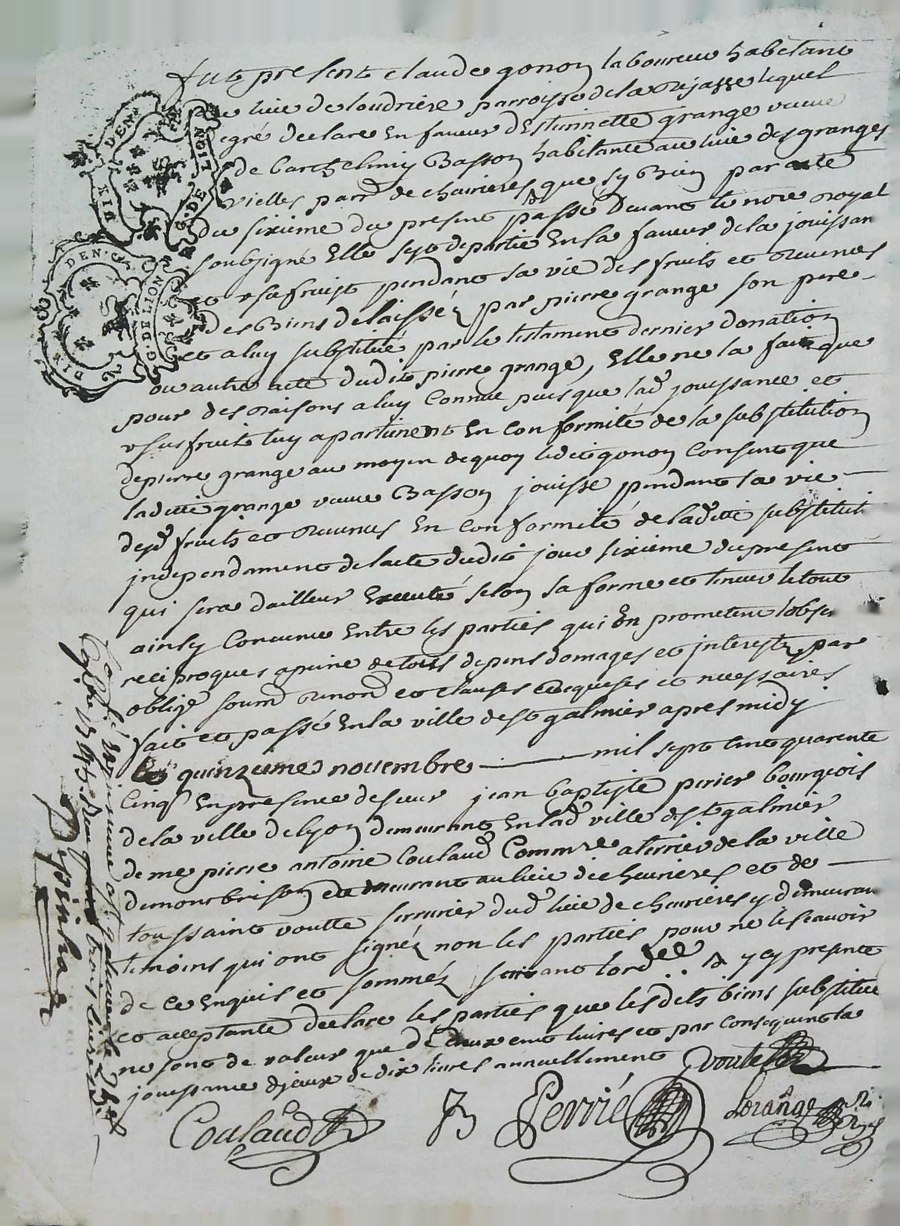 DIX DEN.
G. DE LION
DIX DEN.
G. DE LION
fut present claude gonon laboureur habitant
lieu de loudriere parroisse de la Rejasse lequel
gré declare En faveur d'Estiennette grange veuve
de barthelemy Basson habitante au lieu des granges
vielles parr. de cheurieres que sy Bien par acte
du sixieme du present passé devant le nore royal
soubsigné Elle syst departie En sa faveur de la jouissan
et usufruist pendant sa vie des fruits et revenus
des Biens delaissés par pierre grange son pere
et a luy substitué par le testament dernier donation
ou autre acte dudit pierre grange, Elle ne la fait que
pour des raisons a luy connue puisque lad jouissance et
usufruit luy apartienent En conformité de la substitution
de pierre grange au moyen de quoy ledit gonon consent que
laditte grange veuve Basson jouisse pendant sa vie
desd fruits et revenus En conformité de laditte substituti
independament de lacte dudit jour sixieme du present
qui sera dailleur Executé selon sa forme et teneur le tout
ainsy convenu Entre les parties qui En prometent lobser
reciproques a peine de tous depens domages et interests par
oblige soum renon et clauses requises et necessaires
fait et passé En la ville de st galmier apres midy
le quinzieme novembre mil sept cent quarente
cinq En presence de sieur jean baptiste perier bourgeois
de la ville de lyon demeurant En lad ville de st galmier
de me pierre antoine Coulaud Commre a terrier de la ville
de montbrison et demeurant au lieu de cheurieres et de
toussaint voutte serrurier dud lieu de cheurieres y demeuran
temoins qui ont signéz non les parties pour ne le scavoir
de ce Enquis et sommés suivant lord y cy presente
et acceptante declare les parties que les dits biens substitue
ne sont de valeur que de deux cent livres et par consequent la
jouissance diceux de dix livres annuellement voute
Coulaud B Perrié Lorange